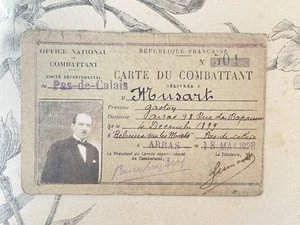 OFFICE NATIONAL
DU
COMBATTANT
COMITÉ DÉPARTEMENTAL
de Pas-de-Calais
RÉPUBLIQUE FRANÇAISE
N° 501
CARTE DU COMBATTANT
DÉLIVRÉE À
M. Musart
Prénoms Gaston
Domicile Arras 48 Rue de Bapaume
Né le 4 Décembre 1899
à
Pas de Calais
à ARRAS le 18 MAI 1928
Le Président du Comité départemental
du Combattant,
Le Titulaire,